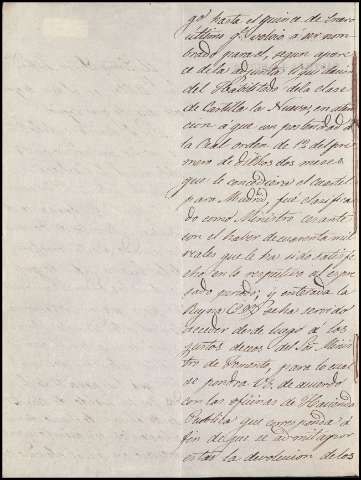 go, hasta el quince de Enero
último q.e volvió a ser nom-
brado para él, segun apare-
ce de la adjunta
del Habilitado de la clase
de Castilla la Nueva, en aten-
cion á que con posteridad á
la Real orden de 1.º del pri-
mero de dichos dos meses
que le concediera el cuartel
para Madrid, fué clasifica-
do como Ministro cesante
con el haber de cuarenta mil
reales que le ha sido satisfe-
cho en lo respectivo al expre-
sado periodo; y enterada la
Reyna se ha servido
acceder desde luego á los
justos deseos del Sor. Minis-
tro de Fomento, para lo cual
se pondrá V.E. de acuerdo
con las oficinas de Hacienda
Publica que corresponda á
fin de que se admita por
estas la devolucion de los